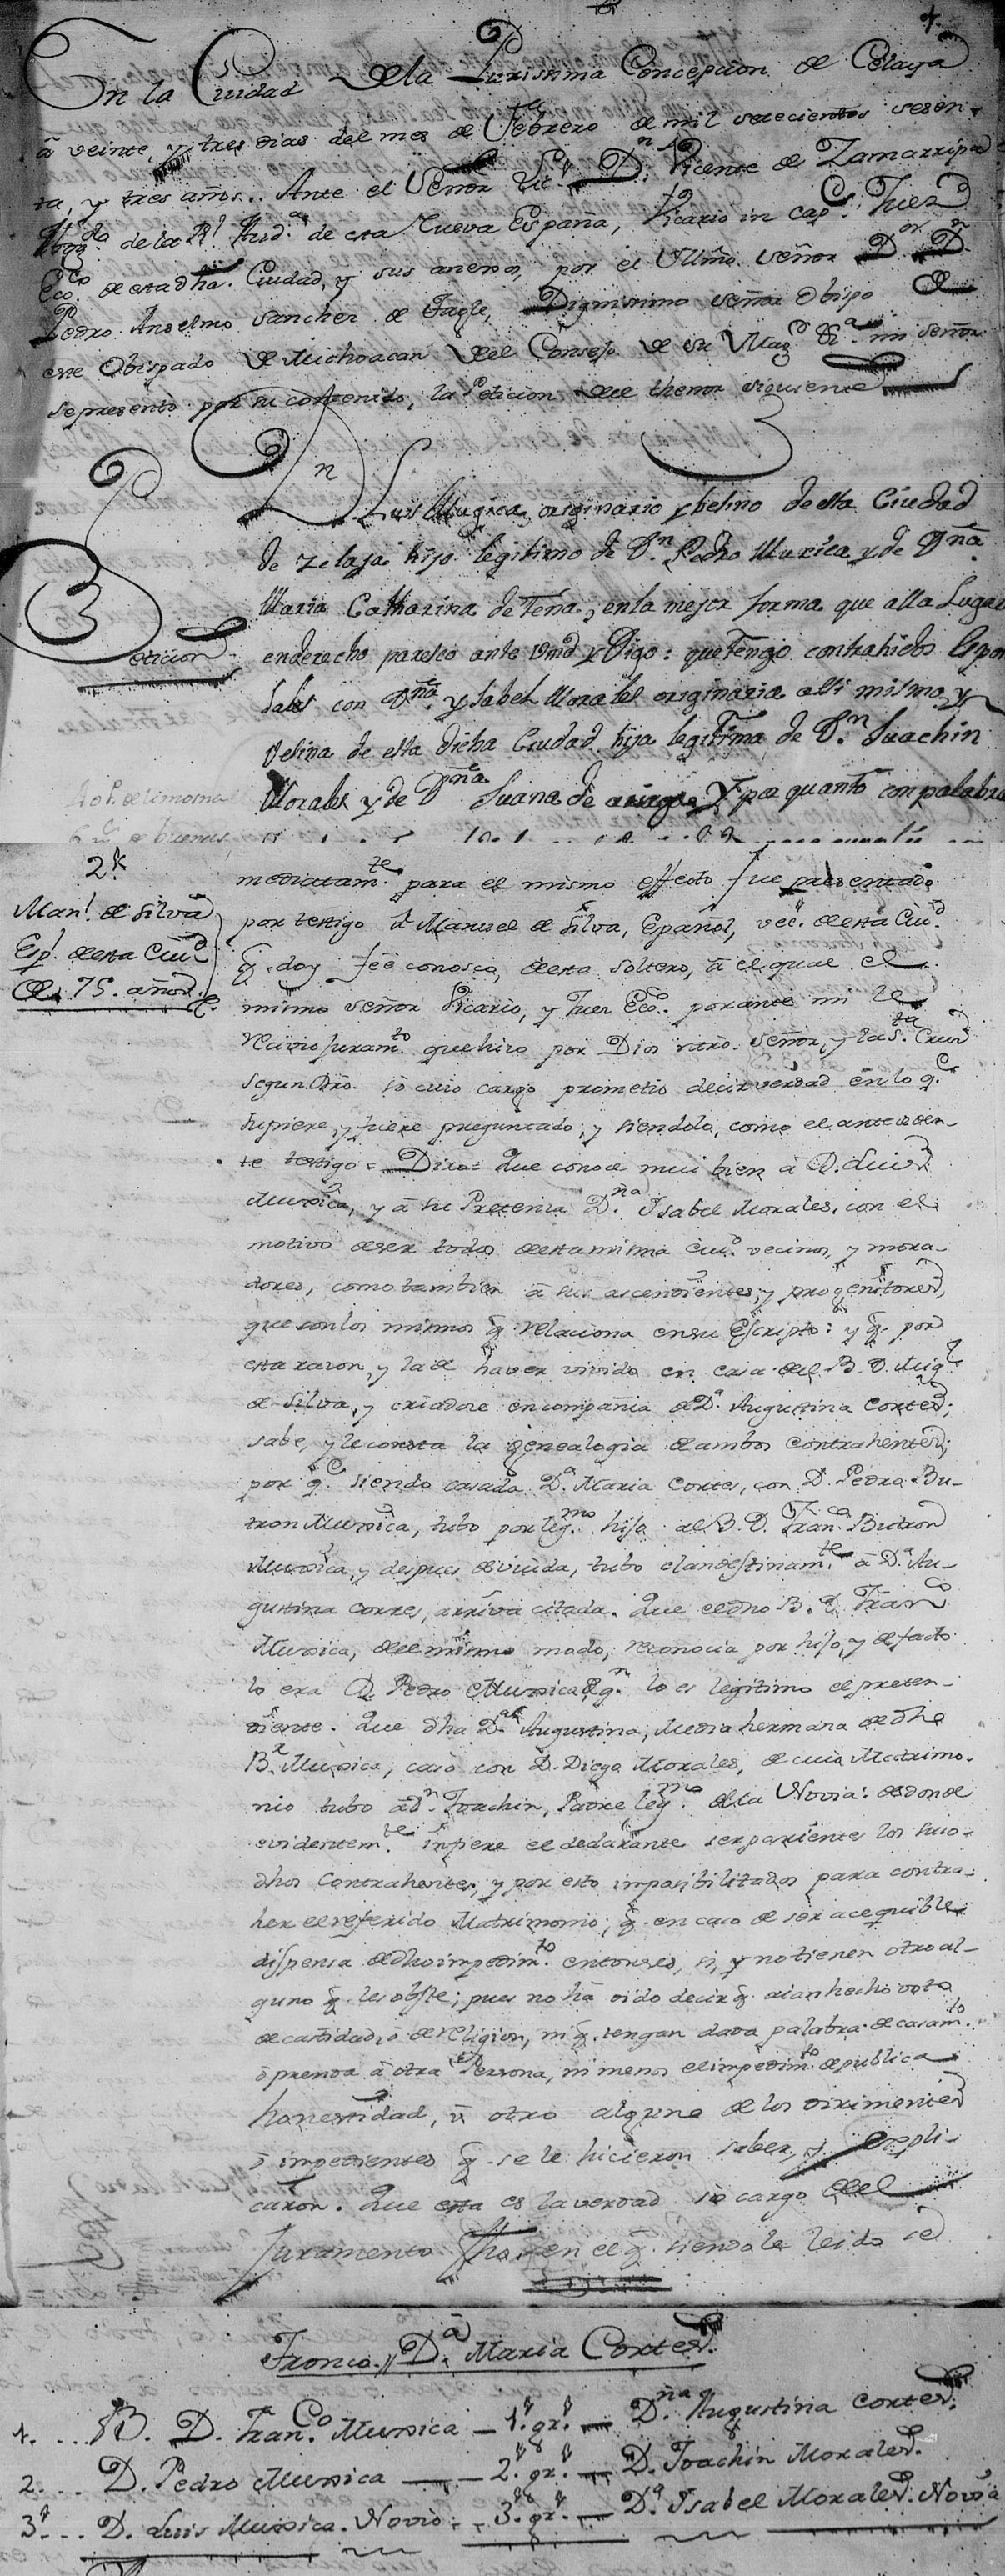 En la Ciudad de la Purissima Concepcion de Celaya
à veinte, y tres dias del mes de Febrero de mil setecientos sesen-
ta, y tres años.. Ante el Señor Lic.do D.n Jph Vicente de Zamarripa
Abog.do de la R.l Aud.a de esta Nueva España, Vicario in cap.e Juez
Ecc.o de esta dha. Ciudad, y sus anexos, por el Illmo. Señor D.or D.n
Pedro Anselmo Sanchez de Tagle, Dignissimo señor Obispo de
este Obispado de Michoacan del Consejo de su Mag.d &.a mi señor
se presentò por su contenido, la Peticion del thenor siguiente
D.n Luis Mugica, originario y besino de esta Ciudad
de Zelaya hijo legitimo de D.n Pedro Muxica y de Dña.
Maria Catharina de Tena, en la mejor forma que alla Lugar
en derecho paresco ante Vmd y Digo: que Tengo contrahidos Espon
Peticion
sales con Dña. Ysabel Morales originaria assi mismo y
Vesina de esta dicha Ciudad hija legitima de D.n Juachin
Morales y de Dña Juana de Y por quanto con palabra
2.º
Man.l de Silva
Esp.l de esta Ciu.d
de 75. años.
mediatam.te para el mismo effecto fue presentado
por testigo à Manuel de Silva, Español, vec.o de esta Ciu.d
q. doy feè conosco, de esta soltero, à el qual el
mismo señor Vicario, y Juez Ecc.o por ante mi le
recivio Juram.to que hizo por Dios ntro. Señor, y la S.ta Cruz
segun dro. sò cuio cargo prometio decir verdad en lo q.e
supiere, y fuere preguntado, y siendolo, como el anteceden-
te testigo = Dixo = Que conoce mui bien à D. Luis
Muxica, y à su Pretensa Dña. Isabel Morales, con el
motivo de ser todos de esta misma Ciu.d vecinos, y mora-
dores, como tambien à sus ascendientes, y progenitores,
que son los mismos q. relaciona en su Escripto: y q. por
esta razon, y la de haver vivido en casa del B. D. Mig.l
de Silva, y criadose en compañia de D.a Augustina Cortes;
sabe, y le consta la genealogia de ambos contrahentes;
por q.e siendo casada D.a Maria Cortes, con D. Pedro Bu-
tron Muxica, tubo por leg.mo hijo al B. D. Fran.co Butron
Muxica, y despues de viuda, tubo clandestinam.te à D.a Au-
gustina Cortes, arriva citada. Que el dho B. D. Fran.co
Muxica, del mismo modo, reconocia por hijo, y de facto
lo era D. Pedro Muxica de q.n lo es legitimo el preten-
diente. Que dha D.a Augustina, Media hermana de dho
B.r Muxica, casò con D. Diego Morales, de cuio Matrimo-
nio tubo à D.n Joachin, Padre leg.mo de la Novia: de donde
evidentem.te infiere el declarante ser parientes los suso-
dhos Contrahentes, y por esto imposibilitados para contra-
her el referido Matrimonio; q. en caso de ser acequible
dispensa de dho impedim.to entonces, si, y no tienen otro al-
guno q. les obste; pues no hà oido decir q. aian hecho voto
de castidad, ò de religion, ni q. tengan dada palabra de casam.to
ò prenda à otra Persona, ni menos el impedim.to de publica
honestidad, ù otro alguno de los dirimentes
ò impedientes q. se le hicieron saber, y expli-
caron. Que esta es la verdad sò cargo del
Juramento fho. en el q. siendole leido se
Tronco. D.a Maria Cortes.
1. ... B. D. Fran.co Muxica — 1.º gr.º — Dña Augustina Cortes.
2... D. Pedro Muxica — 2.º gr.º — D. Joachin Morales.
3º... D. Luis Muxica. Novio. — 3.º gr.º — D.a Isabel Morales. Novia